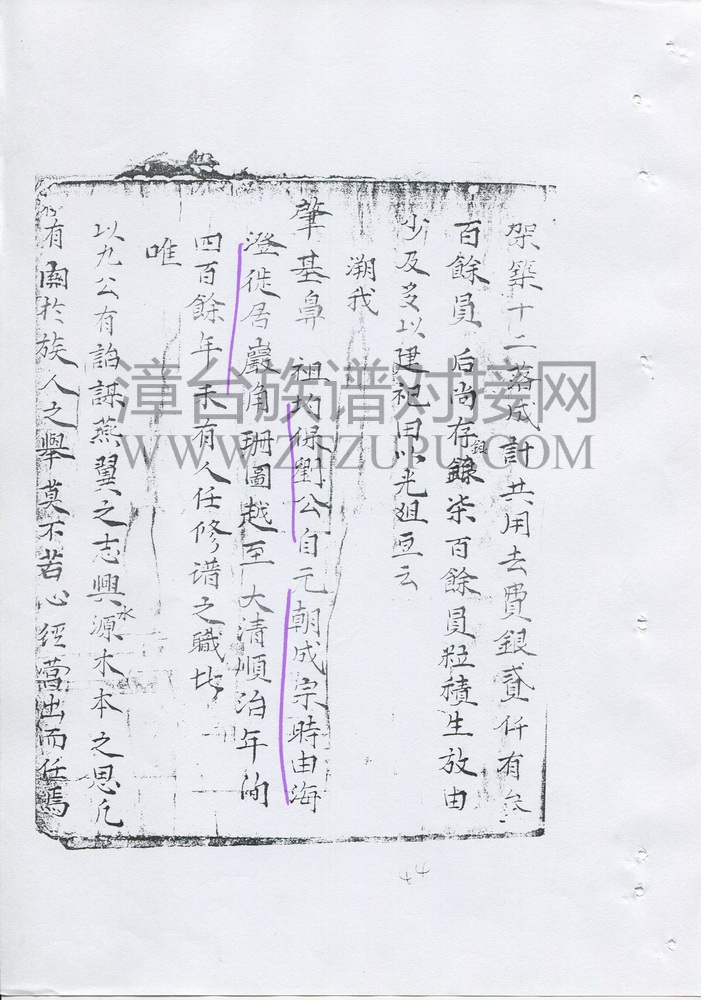 架築十二落成計共用去費銀貳仟有叁
百餘員 后尚存銀柒百餘員粒積生放由
少及多以建祀田以光俎豆云
溯我
肇基鼻 祖均保劉公自元朝成宗時由海
澄徙居巖角珊圖越至大清順治年間
四百餘年未有人任修谱之職
唯
以九公有詒謀燕翼之志興水源木本之思凡
有関於族人之舉莫不若心經營出而任焉
漳台族谱对接网
WWW.ZTZUPU.COM
44